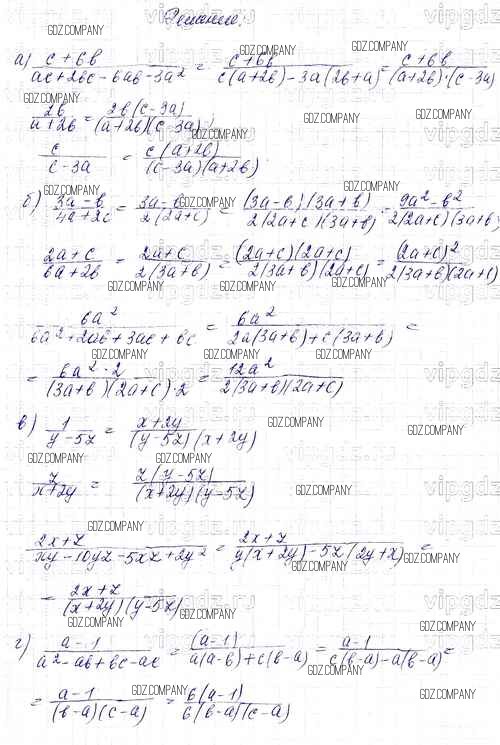 Решение.
а) (c+6b)/(ac+2bc-6ab-3a²) = (c+6b)/(c(a+2b)-3a(2b+a)) = (c+6b)/((a+2b)·(c-3a)
2b/(a+2b) = 2b(c-3a)/((a+2b)(c-3a));
c/(c-3a) = c(a+2b)/((c-3a)(a+2b))
б) (3a-b)/(4a+2c) = (3a-b)/(2(2a+c)) = (3a-b)(3a+b)/(2(2a+c)(3a+b)) = (9a²-b²)/(2(2a+c)(3a+b));
(2a+c)/(6a+2b) = (2a+c)/(2(3a+b)) = (2a+c)(2a+c)/(2(3a+b)(2a+c)) = (2a+c)²/(2(3a+b)(2a+c))
6a²/(6a²+2ab+3ac+bc) = 6a²/(2a(3a+b)+c(3a+b)) =
= 6a²·2/((3a+b)(2a+c)·2) = 12a²/(2(3a+b)(2a+c))
в) 1/(y-5z) = (x+2y)/((y-5z)(x+2y))
z/(x+2y) = z(y-5z)/((x+2y)(y-5z))
(2x+z)/(xy-10yz-5xz+2y²) = (2x+z)/(y(x+2y)-5z(2y+x)) =
= (2x+z)/((x+2y)(y-5z))
г) (a-1)/(a²-ab+bc-ac) = (a-1)/(a(a-b)+c(b-a)) = (a-1)/(c(b-a)-a(b-a)) =
= (a-1)/((b-a)(c-a)) = 6(a-1)/(6(b-a)(c-a))
GDZ.COMPANY
vipgdz